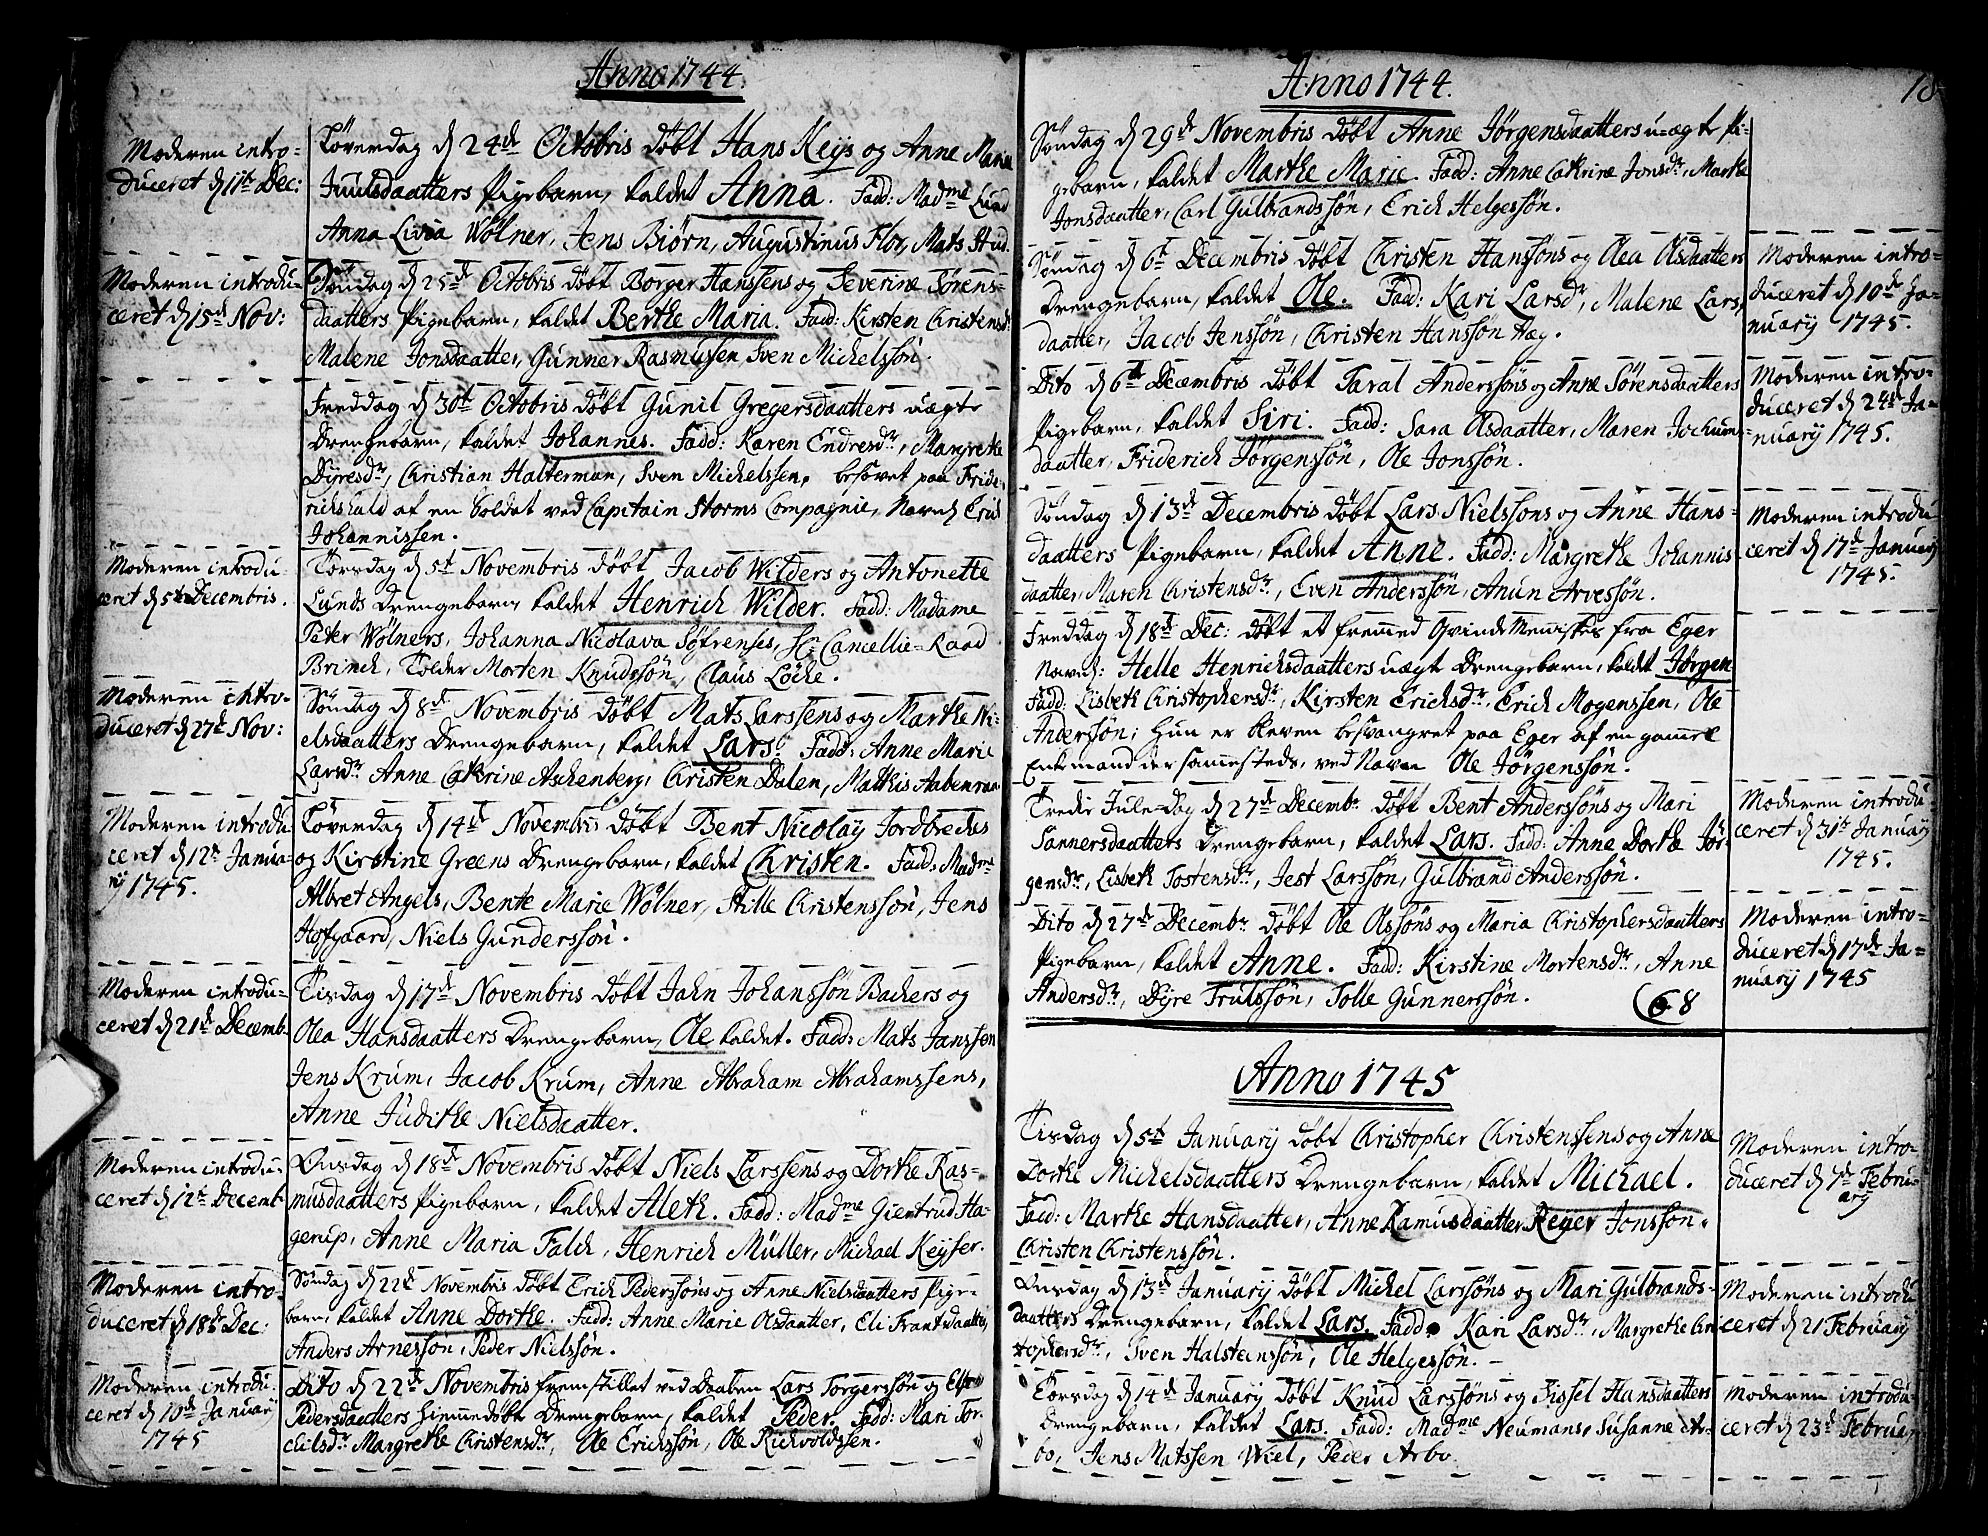 Anno 1744.
Moderen intro-
duceret d 11te Dec:
Löverdag d 24de Octobris döbt Hans Keijs og Anne Maria
Juulsdaatters Pigebarn, kaldet Anna. Fadd: Madme Lund
Anna Livia Wölner, Jens Biørn, Augustinus Flor, Mats Stud.
Moderen introdu-
ceret d 15de Nov:
Söndag d 25de Octobris döbt Borger Hanssens og Severine Sørens-
daatters Pigebarn, kaldet Berthe Maria. Fadd: Kirsten Christensdr
Malene Jonsdaatter, Gunner Rasmussen, Sven Michelssön.
Freddag d 30te Octobris döbt Gunil Gregersdaatters uægte
Drengebarn, kaldet Johannes. Fadd: Karen Endresdr, Margrethe
Dyresdr, Christian Halterman, Sven Michelssen, besovet paa Fride-
richshald af en Soldat ved Capitain Storms Compagnie, Navnl: Erich
Johannissen.
Moderen introdu-
ceret d 5te Decembris.
Torsdag d 5te Novembris döbt Jacob Wilders og Antonette
Lunds Drengebarn, kaldet Henrich Wilder. Fadd: Madame
Peder Wölners, Johanna Nicolava Söfrenses, Hr Cancellie-Raad
Brinch, Tolder Morten Knudssön, Claus Löche.
Moderen intro-
duceret d 27de Nov:
Söndag d 8de Novembris döbt Mats Larssens og Marthe Ni-
elsdaatters Drengebarn, kaldet Lars. Fadd: Anne Marie
Larsdr Anne Cathrine Aschenberg, Christen Dalen, Mathis Aabenraa
Moderen introdu-
ceret d 12te Janua-
rij 1745.
Löverdag d 14de Novembris döbt Bent Nicolaij Jordbreches
og Kirstine Greens Drengebarn, kaldet Christen. Fadd: Madme
Albret Angels, Bente Marie Wölner, Stille Christenssön, Jens
Hofgaard, Niels Gunderssön.
Moderen introdu-
ceret d 21de Decemb.
Tisdag d 17de Novembris döbt Jahn Johanssön Bachers og
Olea Hansdaatters Drengebarn, Ole kaldet. Fadd: Mats Janssen
Jens Krum, Jacob Krum, Anne Abraham Abrahamssens,
Anne Judithe Nielsdaatter.
Moderen introdu-
ceret d 12te Decemb.
Onsdag d 18de Novembris döbt Niels Larssens og Dorthe Ras-
musdaatters Pigebarn, kaldet Aleth. Fadd: Madme Giertrud Ha-
gerup, Anne Maria Falch, Henrich Müller, Michael Keyser.
Moderen intro-
duceret d 18de Dec:
Söndag d 22de Novembris döbt Erich Pederssöns og Anne Nielsdaatters Pige-
barn, kaldet Anne Dorthe. Fadd: Anne Marie Olsdaatter, Eli Frantsdaatter,
Anders Arnessön, Peder Nielssön.
Moderen introdu-
ceret d 10de Januarij
1745
Dito d 22de Novembris fremstillet ved Daaben Lars Torgerssön og
Pedersdaatters hiemmedöbte Drengebarn, kaldet Peder. Fadd: Mari Tor-
chilsdr Margrethe Christensdr, Ole Erichssön, Ole Richvoldssen.
18
Anno 1744.
Söndag d 29de Novembris döbt Anne Jörgensdaatters uægte Pi-
gebarn, kaldet Marthe Marie. Fadd: Anne Cathrine Jonsdr, Marthe
Jonsdaatter, Carl Gulbrandssön, Erich Helgessön.
Söndag d 6te Decembris döbt Christen Hanssöns og Olea Olsdaatters
Drengebarn, kaldet Ole. Fadd: Kari Larsdr, Malene Lars-
daatter, Jacob Jenssön, Christen Hanssön Hæg.
Moderen intro-
duceret d 10de Ja-
nuarij 1745.
Dito d 6te Decembris döbt Taral Anderssöns og Anne Sörensdaatters
Pigebarn, kaldet Siri. Fadd: Sara Olsdaatter, Maren Jochums-
daatter, Friderich Jörgenssön, Ole Jonssön.
Moderen intro-
duceret d 24de Ja-
nuarij 1745.
Söndag d 13de Decembris döbt Lars Nielssons og Anne Hans-
daatters Pigebarn, kaldet Anne. Fadd: Margrethe Johannis
daatter, Maren Christensdr, Even Anderssön, Anun Arvessön.
Moderen introdu-
ceret d 17de Januarij
1745.
Freddag d 18de Dec: döbt et fremmed Qvinde Menniskes fra Eger
Navnl: Helle Henrichsdaatters uægte Drengebarn, kaldet Jörgen
Fadd: Lisbeth Christophersdr, Kirsten Erichsdr, Erich Mogenssen, Ole
Anderssön; hun er bleven besvangret paa Eger af en gammel
Enkemand der sammesteds, ved Navn Ole Jörgenssön.
Tredie Jule-Dag d 27de Decembr. döbt Bent Anderssöns og Mari
Sannersdaatters Drengebarn, kaldet Lars. Fadd: Anne Dorthe Jör-
gensdr, Lisbeth Tostensdr, Jest Larssön, Gulbrand Anderssön.
Moderen introdu-
ceret d 31te Januarij
1745.
Dito d 27de Decembr döbt Ole Olssöns og Maria Christophersdaatters
Pigebarn, kaldet Anne. Fadd: Kirstine Mortensdr, Anne
Andersdr, Dyre Trulssön, Tolle Gunnerssön. 68
Moderen intro-
duceret d 17de Ja-
nuarij 1745
Anno 1745
Tisdag d 5te Januarij döbt Christopher Christenssens og Anne
Dorthe Michelsdaatters Drengebarn, kaldet Michael.
Fadd: Marthe Hansdaatter, Anne Ramusdaatter, Reyer Jonsson,
Christen Christenssön.
Moderen intro-
duceret d 7de Febru-
arij
Onsdag d 13de Januarij döbt Michel Larssöns og Mari Gulbrands-
daatters Drengebarn, kaldet Lars. Fadd: Kari Larsdr, Margrethe Chri-
stophersdr, Sven Halsteinssön, Ole Helgessön.
Moderen introdu-
ceret d 21 Februarij
Torsdag d 14de Januarij döbt Knud Larssöns og Sissel Hansdaatters
Drengebarn, kaldet Lars. Fadd: Madme Neumans, Susanne Ar-
bo, Jens Matssen Wiel, Peder Arbo.
Moderen introdu-
ceret d 23de Februarij